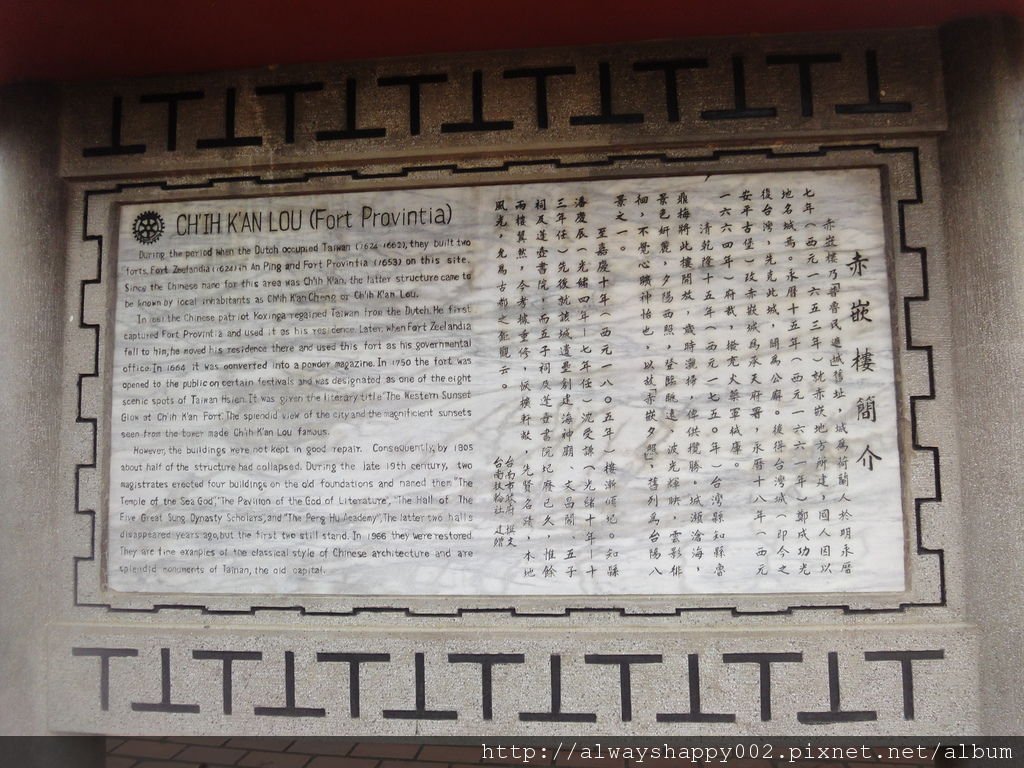 CH'IH K'AN LOU (Fort Provintia)
During the period when the Dutch occupied Taiwan (1624-1662), they built two
forts, Fort Zeelandia (1624) in An Ping and Fort Provintia (1653) on this site.
Since the Chinese name for this area was Ch'ih K'an, the latter structure came to
be known by local inhabitants as Ch'ih K'an Cheng or Ch'ih K'an Lou.
In 1661 the Chinese patriot Koxinga regained Taiwan from the Dutch. He first
captured Fort Provintia and used it as his residence. Later, when Fort Zeelandia
fell to him, he moved his residence there and used this fort as his governmental
office. In 1664 it was converted into a powder magazine. In 1750 the fort was
opened to the public on certain festivals and was designated as one of the eight
scenic spots of Taiwan Hsien. It was given the literary title "The Western Sunset
Glow at Ch'ih K'an Fort. The splendid view of the city and the magnificient sunsets
seen from the tower made Ch'ih K'an Lou famous.
However, the buildings were not kept in good repair. Consequently, by 1805
about half of the structure had collapsed. During the late 19th century, two
magistrates erected four buildings on the old foundations and named them "The
Temple of the Sea God", "The Pavilion of the God of Literature", "The Hall of The
Five Great Sung Dynasty Scholars", and "The Peng Hu Academy". The latter two halls
disappeared years ago, but the first two still stand. In 1966 they were restored.
They are fine examples of the classical style of Chinese architecture and are
splendid monuments of Tainan, the old capital.
赤嵌樓簡介
赤嵌樓乃普魯民遜越舊址，城為荷蘭人於明永曆
七年（西元一六五三年）就赤嵌地方所建，國人因以
地名城焉。永曆十五年（西元一六六一年）鄭成功光
復台灣，先克此城，闢為公廨。後得台灣城（即今之
安平古堡）改赤嵌城為承天府署，永曆十八年（西元
一六六四年）府裁，撥充火藥軍械庫。
清乾隆十五年（西元一七五〇年）台灣縣知縣魯
鼎梅將此樓開放，歲時灑掃，俾供攬勝。城瀕滄海，
景色妍麗，夕陽西照，登臨眺遠，波光輝映，雲影徘
徊，不覺心曠神怡也，以故赤嵌夕照，舊列為台陽八
景之一。
至嘉慶十年（西元一八〇五年）樓漸傾圮。知縣
潘慶辰（光緒四年—七年任）沈受謙（光緒十年—十
三年任）先後就該城遺壘創建海神廟、文昌閣、五子
祠及蓬壺書院，而五子祠及蓬壺書院圮廢已久，惟餘
兩樓翼然，今考據重修，恢擴軒敞，先賢名蹟，本地
風光，允為古都之鉅觀云。
台南市政府 撰文
台南扶輪社 建贈
http://alwayshappy002.pixnet.net/album